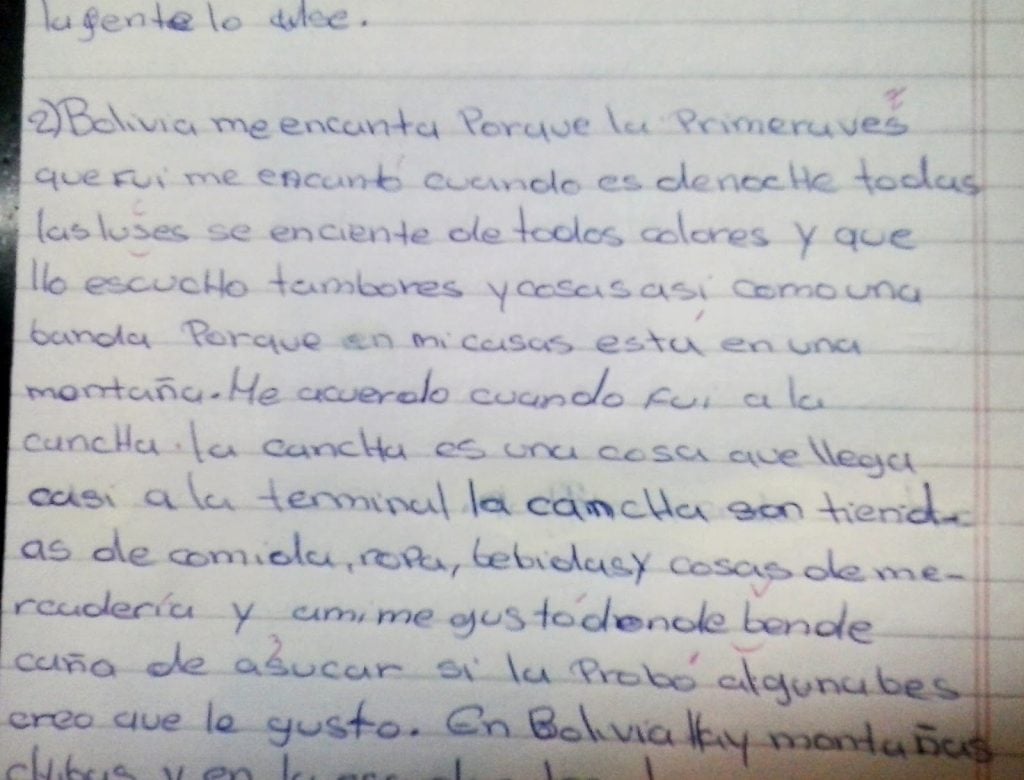 la gente lo dise.
2) Bolivia me encanta Porque la Primera ves
que fui me encantó cuando es de noche todas
las luses se enciente de todos colores y que
llo escucho tambores y cosas asi como una
banda Porque en mi casas está en una
montaña. Me acuerdo cuando fui a la
cancha. la cancha es una cosa que llega
casi a la terminal la cancha son tiend-
as de comida, ropa, bebidas y cosas de me-
rcadería y a mi me gustó donde bende
caña de asucar si la Probó alguna bes
creo que le gusto. En Bolivia Hay montañas
y en